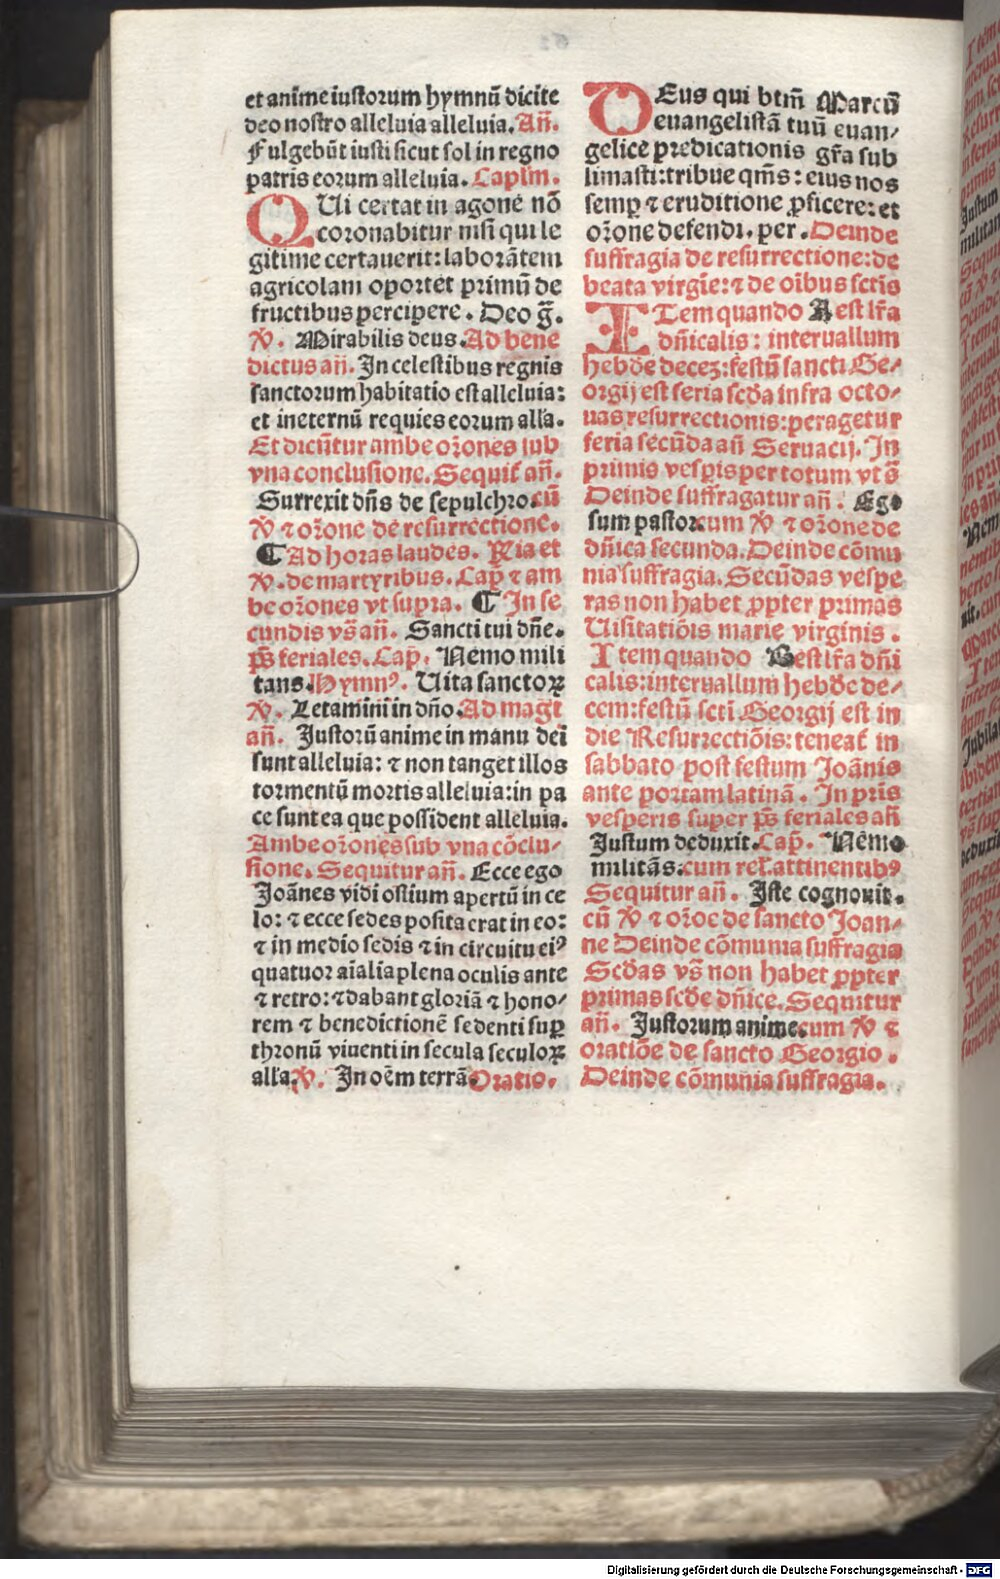 et anime iustorum hymnū dicite
deo nostro alleluia alleluia. Añ.
Fulgebūt iusti sicut sol in regno
patris eorum alleluia. Caplm̄.
QUi certat in agone nō
coronabitur nisi qui le
gitime certauerit: laborātem
agricolam oportet primū de
fructibus percipere. Deo g̃.
℣. Mirabilis deus. Ad bene
dictus añ. In celestibus regnis
sanctorum habitatio est alleluia:
et in eternū requies eorum alľa.
Et dicūtur ambe oꝛones sub
vna conclusione. Sequit᷑ añ.
Surrexit dñs de sepulchro. cū
℣ ⁊ oꝛone de resurrectione.
¶ Ad horas laudes. Ria et
℣. de martyribus. Cap̄ ⁊ am
be oꝛones vt supra. ¶ In se
cundis vs̄ añ. Sancti tui dñe.
ps̄ feriales. Cap̄. Nemo mili
tans. Hymnꝰ. Uita sanctoꝝ
℣. Letamini in dño. Ad mag̃t
añ. Justorū anime in manu dei
sunt alleluia: ⁊ non tanget illos
tormentū mortis alleluia: in pa
ce sunt ea que possident alleluia.
Ambe oꝛones sub vna cōclu⸗
sione. Sequitur añ. Ecce ego
Joānes vidi ostium apertū in ce
lo: ⁊ ecce sedes posita erat in eo:
⁊ in medio sedis ⁊ in circuitu eiꝰ
quatuor aīalia plena oculis ante
⁊ retro: ⁊ dabant gloriā ⁊ hono⸗
rem ⁊ benedictionē sedenti suꝑ
thronū viuenti in secula seculoꝝ
alľa. ℣. In oēm terrā. Oratio.
DEus qui btm̄ Marcū
euangelistā tuū euan⸗
gelice predicationis gr̃a sub
limasti: tribue qm̄s: eius nos
semꝑ ⁊ eruditione ꝓficere: et
oꝛone defendi. per. Deinde
suffragia de resurrectione: de
beata virgīe: ⁊ de oībus sctīs
ITem quando A est lr̄a
dñicalis: interuallum
hebde decez: festū sancti Ge⸗
orgij est feria scd̄a infra octo⸗
uas resurrectionis: peragetur
feria secūda añ Seruacij. In
primis vesꝑis per totum vt s̄
Deinde suffragatur añ. Ego
sum pastor. cum ℣ ⁊ oꝛone de
dñica secunda. Deinde cōmu
nia suffragia. Secūdas vespe
ras non habet ꝓpter primas
Uisitatiōis marie virginis.
Item quando B est lr̄a dñi
calis: interuallum hebd̄e de⸗
cem: festū scti Georgij est in
die Resurrectiōis: teneat᷑ in
sabbato post festum Joānis
ante portam latinā. In prīs
vesperis super ps̄ feriales añ
Justum deduxit. Cap̄. Nemo
militās. cum rel̄. attinentibꝰ
Sequitur añ. Iste cognouit.
cū ℣ ⁊ oꝛoe de sancto Joan⸗
ne Deinde cōmunia suffragia
Scd̄as vs̄ non habet ꝓpter
primas scd̄e dñice. Sequitur
añ. Justorum anime. cum ℣ ⁊
oratiōe de sancto Georgio.
Deinde cōmunia suffragia.
Digitalisierung gefördert durch die Deutsche Forschungsgemeinschaft - DFG